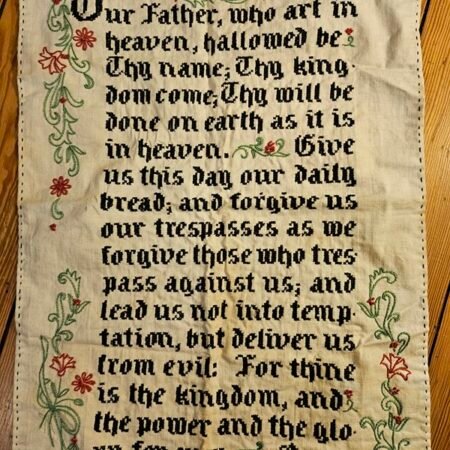 Our Father, who art in
heaven, hallowed be
Thy name; Thy king-
dom come; Thy will be
done on earth as it is
in heaven. Give
us this day our daily
bread; and forgive us
our trespasses as we
forgive those who tres-
pass against us; and
lead us not into temp-
tation, but deliver us
from evil: For thine
is the kingdom, and
the power and the glo-